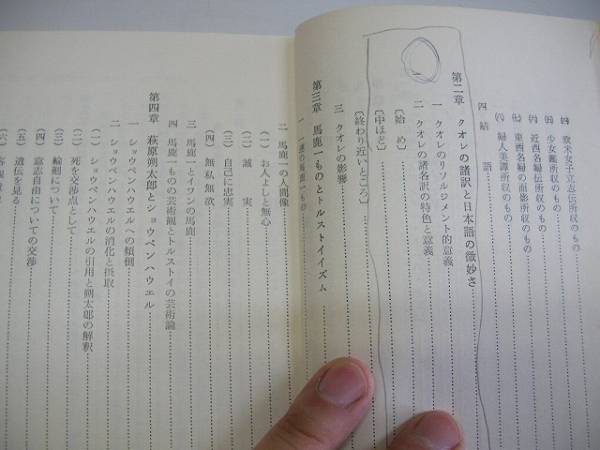 ㈣ 欧米女子立志伝所収のもの
㈤ 少女鑑所収のもの
㈥ 近西名婦伝所収のもの
㈦ 東西名婦の面影所収のもの
㈧ 婦人美譚所収のもの
四 結語
第二章 クオレの諸訳と日本語の微妙さ
一 クオレのリソルジメント的意義
二 クオレの諸名訳の特色と意義
〔始め〕
〔中ほど〕
〔終わり近いところ〕
三 クオレの影響
第三章 馬鹿一ものとトルストイイズム
一 一連の馬鹿一もの
二 馬鹿一の人間像
(一) お人よしと無心
(二) 誠実
(三) 自己に忠実
(四) 無私無欲
三 馬鹿一とイワンの馬鹿
四 馬鹿一ものの芸術観とトルストイの芸術論
第四章 萩原朔太郎とショウペンハウエル
一 ショウペンハウエルへの傾倒
二 ショウペンハウエルの消化と摂取
(一) ショウペンハウエルの引用と朔太郎の解釈
(二) 死を交渉点として
(三) 輪廻について
(四) 意志自由についての交渉
(五) 遺伝を見る
(六)